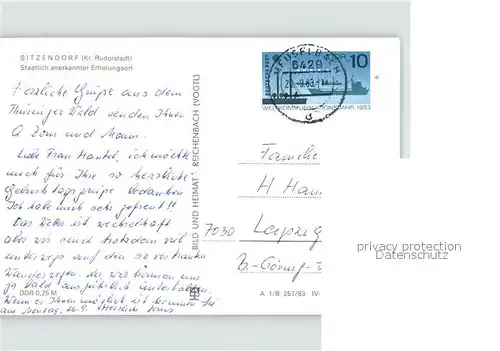 SITZENDORF (Kr. Rudolstadt)
Staatlich anerkannter Erholungsort
Herzliche Grüße aus dem
Thüringer Wald senden Ihnen
und Mann.
Liebe Frau Hantel, ich möchte
mich für Ihre so herzliche
Geburtstagsgrüße bedanken
Ich habe mich sehr gefreut!!
Das Wetter ist wechselhaft
aber wir sind trotzdem viel
unterwegs auf den so vertrauten
Wanderwegen. Na, wir können uns
ja bald ausführlich unterhalten.
Wenn es Ihnen möglich ist kommen Sie
am Montag, 26.9.
DDR 0,25 M
BILD UND HEIMAT · REICHENBACH (VOGTL)
MEUSELBACH
6429
-9.83-
d
DDR 10
WELTKOMMUNIKATIONSJAHR 1983
Familie
H Han
7030 Leipzig
B.-Göring-
A 1/B 257/83 IV-
privacy protection
Datenschutz